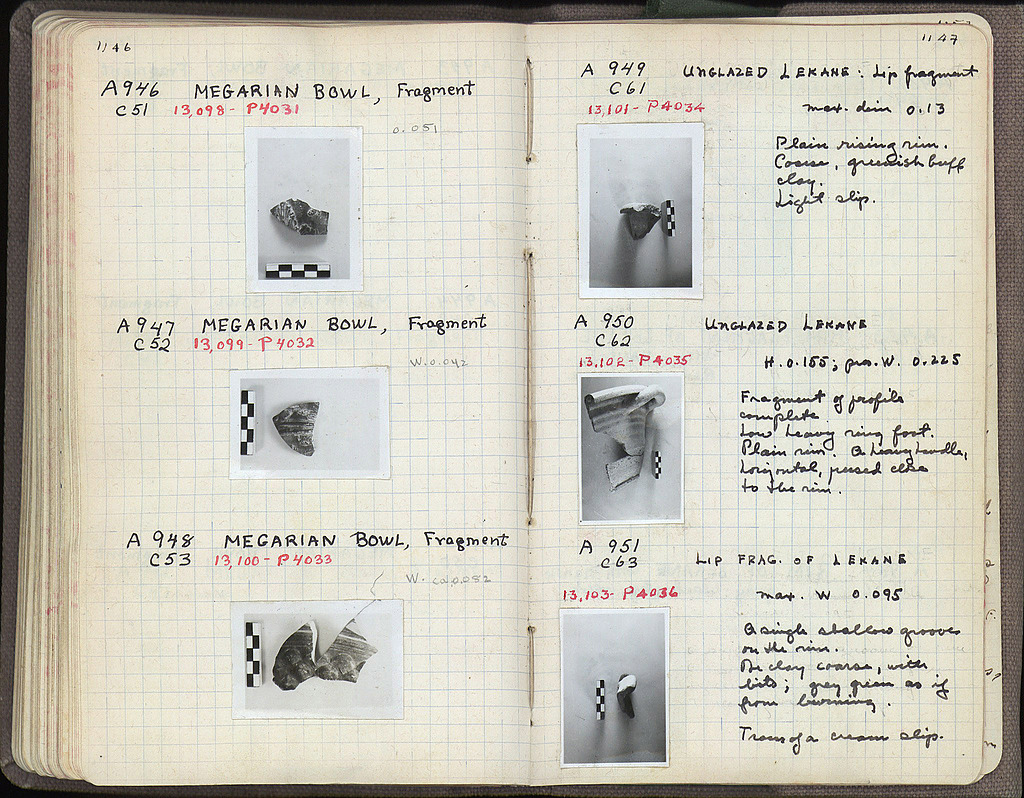 1146
A 946 MEGARIAN BOWL, Fragment
C 51 13,098 - P 4031
0.051
A 947 MEGARIAN BOWL, Fragment
C 52 13,099 - P 4032
W. 0.042
A 948 MEGARIAN BOWL, Fragment
C 53 13,100 - P 4033
W. ca 0.082
1147
A 949 UNGLAZED LEKANE: Lip fragment
C 61
13,101 - P 4034 max. dim 0.13
Plain rising rim.
Coarse, greenish buff
clay.
Light slip.
A 950 UNGLAZED LEKANE
C 62
13,102 - P 4035 H. 0.155; pres. W. 0.225
Fragment of profile
complete
Low heavy ring foot.
Plain rim. A heavy handle,
horizontal, pressed close
to the rim.
A 951 LIP FRAG. OF LEKANE
C 63
13,103 - P 4036 max. W 0.095
A single shallow groove
on the rim.
The clay coarse, with
bits; grey green as if
from burning.
Traces of a cream slip.